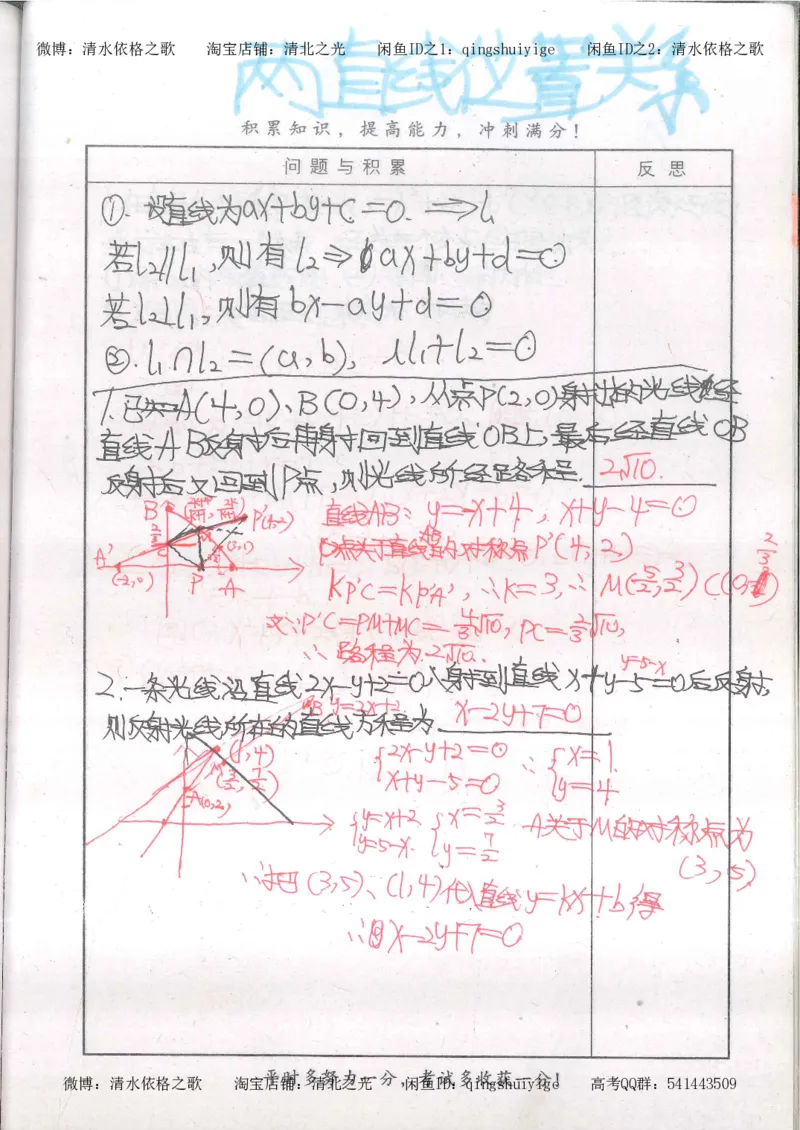 微博：清水依格之歌 淘宝店铺：清北之光 闲鱼ID之1：qingshuiyige 闲鱼ID之2：清水依格之歌
两直线位置关系
积累知识，提高能力，冲刺满分！
问题与积累 反思
①.设直线为ax+by+c=0.⟹l₁
若l₂∥l₁，则有l₂⇒ax+by+d=0
若l₂⊥l₁，则有bx-ay+d=0
②.l₁∩l₂=(a,b)，λl₁+l₂=0
1.已知A(4,0)、B(0,4)，从点P(2,0)射出的光线经
直线AB反射后再射回到直线OB上，最后经直线OB
反射后又回到P点，则光线所经路程 2√10.
B P'(4,2) 直线AB：y=-x+4，x+y-4=0
A' (3,1) P点关于直线的对称点P'(4,2)
(-2,0) P A KP'C=KP'A'，∴K=3，∴M(5/2,3/2) C(0,2/3)
又∵P'C=PM+MC=4/3√10，PC=2/3√10，
∴路程为2√10.
2.一条光线沿直线2x-y+2=0入射到直线x+y-5=0后反射，
y=5-x
y=2x+2
则反射光线所在的直线方程为 x-2y+7=0
(1,4) {2x-y+2=0 x+y-5=0 ∴{x=1. y=4
M(3/2,7/2)
A(0,2) {y=x+2 y=5-x. {x=3/2 y=7/2 A关于M的对称点为
(3,5)
∴把(3,5)、(1,4)代入直线y=kx+b得
∴x-2y+7=0
平时多努力一分，考试多收获一分！
微博：清水依格之歌 淘宝店铺：清北之光 闲鱼ID：qingshuiyige 高考QQ群：541443509